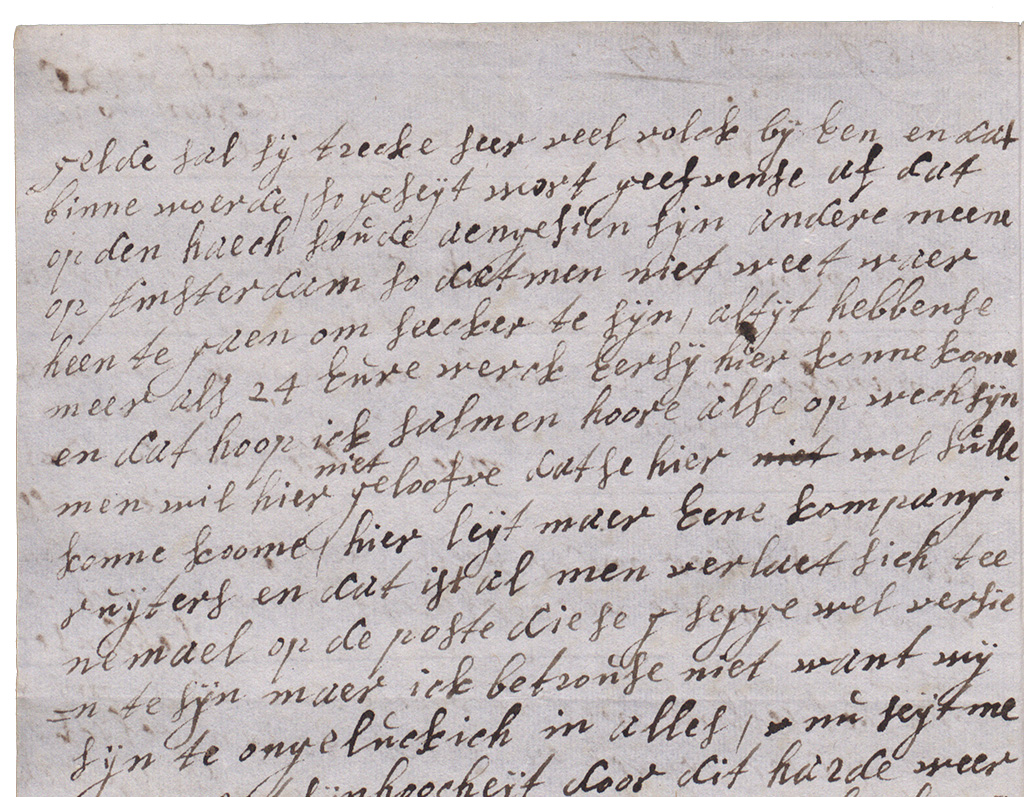 gelde sal sÿ trecke seer veel volck bÿ een en dat
binne woerde, so geseÿt wort geefvense af dat
op den haech soude aengesien sÿn andere meene
op Amsterdam so datmen niet weet waer
heen te gaen om seecker te sÿn, altÿt hebbense
meer als 24 eure werck eer sÿ hier konne koome
en dat hoop ick salmen hoore alse op wech sÿn
men wil hier niet geloofve datse hier niet wel sulle
konne koome, hier leÿt maer eene kompangi
ruÿters en dat ist al men verlaet sich tee
nemael op de poste die se segge wel versie
=n te sÿn maer ick betrouse niet want wÿ
sÿn te ongeluckich in alles, nu seÿt me
sÿnhoocheÿt door dit harde weer